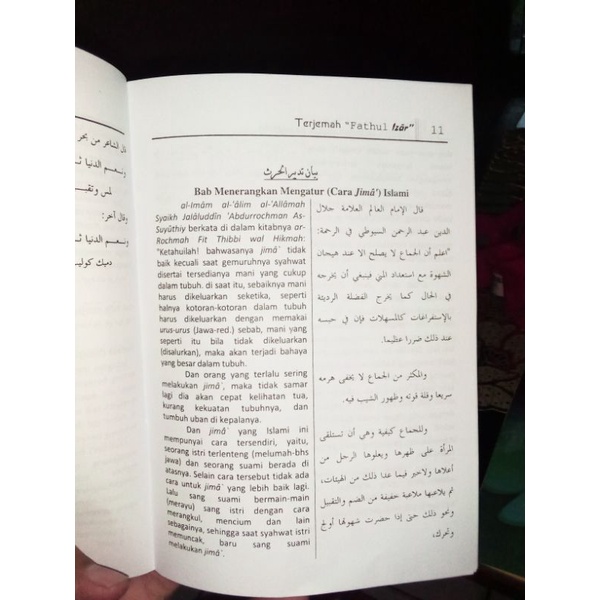 Terjemah "Fathul Izâr" 11
قال الشاعر من بحر
ونعيم الدنيا
لمس وتقبـ
وقال آخر:
ونعيم الدنيا
بيان تدبير الحرث
Bab Menerangkan Mengatur (Cara Jimâ') Islami
al-Imâm al-'âlim al-'Allâmah
Syaikh Jalâluddîn 'Abdurrochman As-
Suyûthiy berkata di dalam kitabnya ar-
Rochmah Fit Thibbi wal Hikmah:
"Ketahuilah! bahwasanya jimâ' tidak
baik kecuali saat gemuruhnya syahwat
disertai tersedianya mani yang cukup
dalam tubuh. di saat itu, sebaiknya mani
harus dikeluarkan seketika, seperti
halnya kotoran-kotoran dalam tubuh
harus dikeluarkan dengan memakai
urus-urus (Jawa-red.) sebab, mani yang
seperti itu bila tidak dikeluarkan
(disalurkan), maka akan terjadi bahaya
yang besar dalam tubuh.
Dan orang yang terlalu sering
melakukan jimâ', maka tidak samar
lagi dia akan cepat kelihatan tua,
kurang kekuatan tubuhnya, dan
tumbuh uban di kepalanya.
Dan jimâ' yang Islami ini
mempunyai cara tersendiri, yaitu,
seorang istri terlenteng (melumah-bhs
jawa) dan seorang suami berada di
atasnya. Selain cara tersebut tidak ada
cara untuk jimâ' yang lebih baik lagi.
Lalu sang suami bermain-main
(merayu) sang istri dengan cara
merangkul, mencium dan lain
sebagainya, sehingga saat syahwat istri
memuncak, baru sang suami
melakukan jimâ'.
قال الإمام العالم العلامة جلال
الدين عبد الرحمن السيوطي في الرحمة:
"اعلم أن الجماع لا يصلح الا عند هيجان
الشهوة مع استعداد المني فينبغي أن يخرجه
في الحال كما يخرج الفضلة الرديئة
بالإستفراغات كالمسهلات فإن في حبسه
عند ذلك ضررا عظيما.
والمكثر من الجماع لا يخفى هرمه
سريعا وقلة قوته وظهور الشيب فيه.
وللجماع كيفية وهي أن تستلقي
المرأة على ظهرها ويعلوها الرجل من
أعلاها ولاخير فيما عدا ذلك من الهيئات،
ثم يلاعبها ملاعبة خفيفة من الضم والتقبيل
ونحو ذلك حتى إذا حضرت شهوتها أولج
وتحرك،